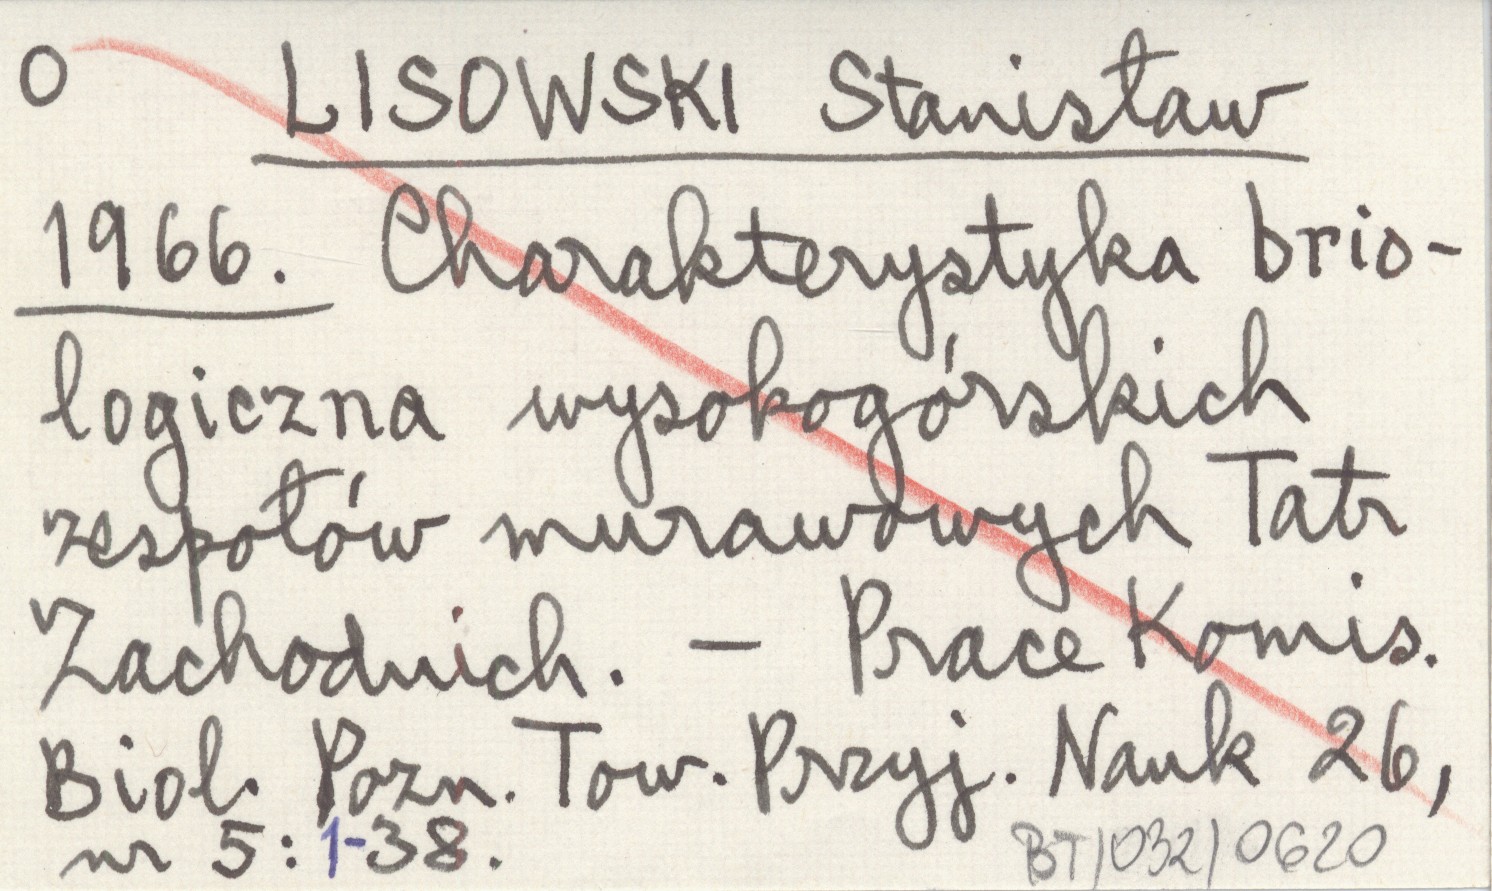 O LISOWSKI Stanisław
1966. Charakterystyka brio-
logiczna wysokogórskich
zespołów murawowych Tatr
Zachodnich. — Prace Komis.
Biol. Pozn. Tow. Przyj. Nauk 26,
nr 5: 1-38.
BT/032/0620